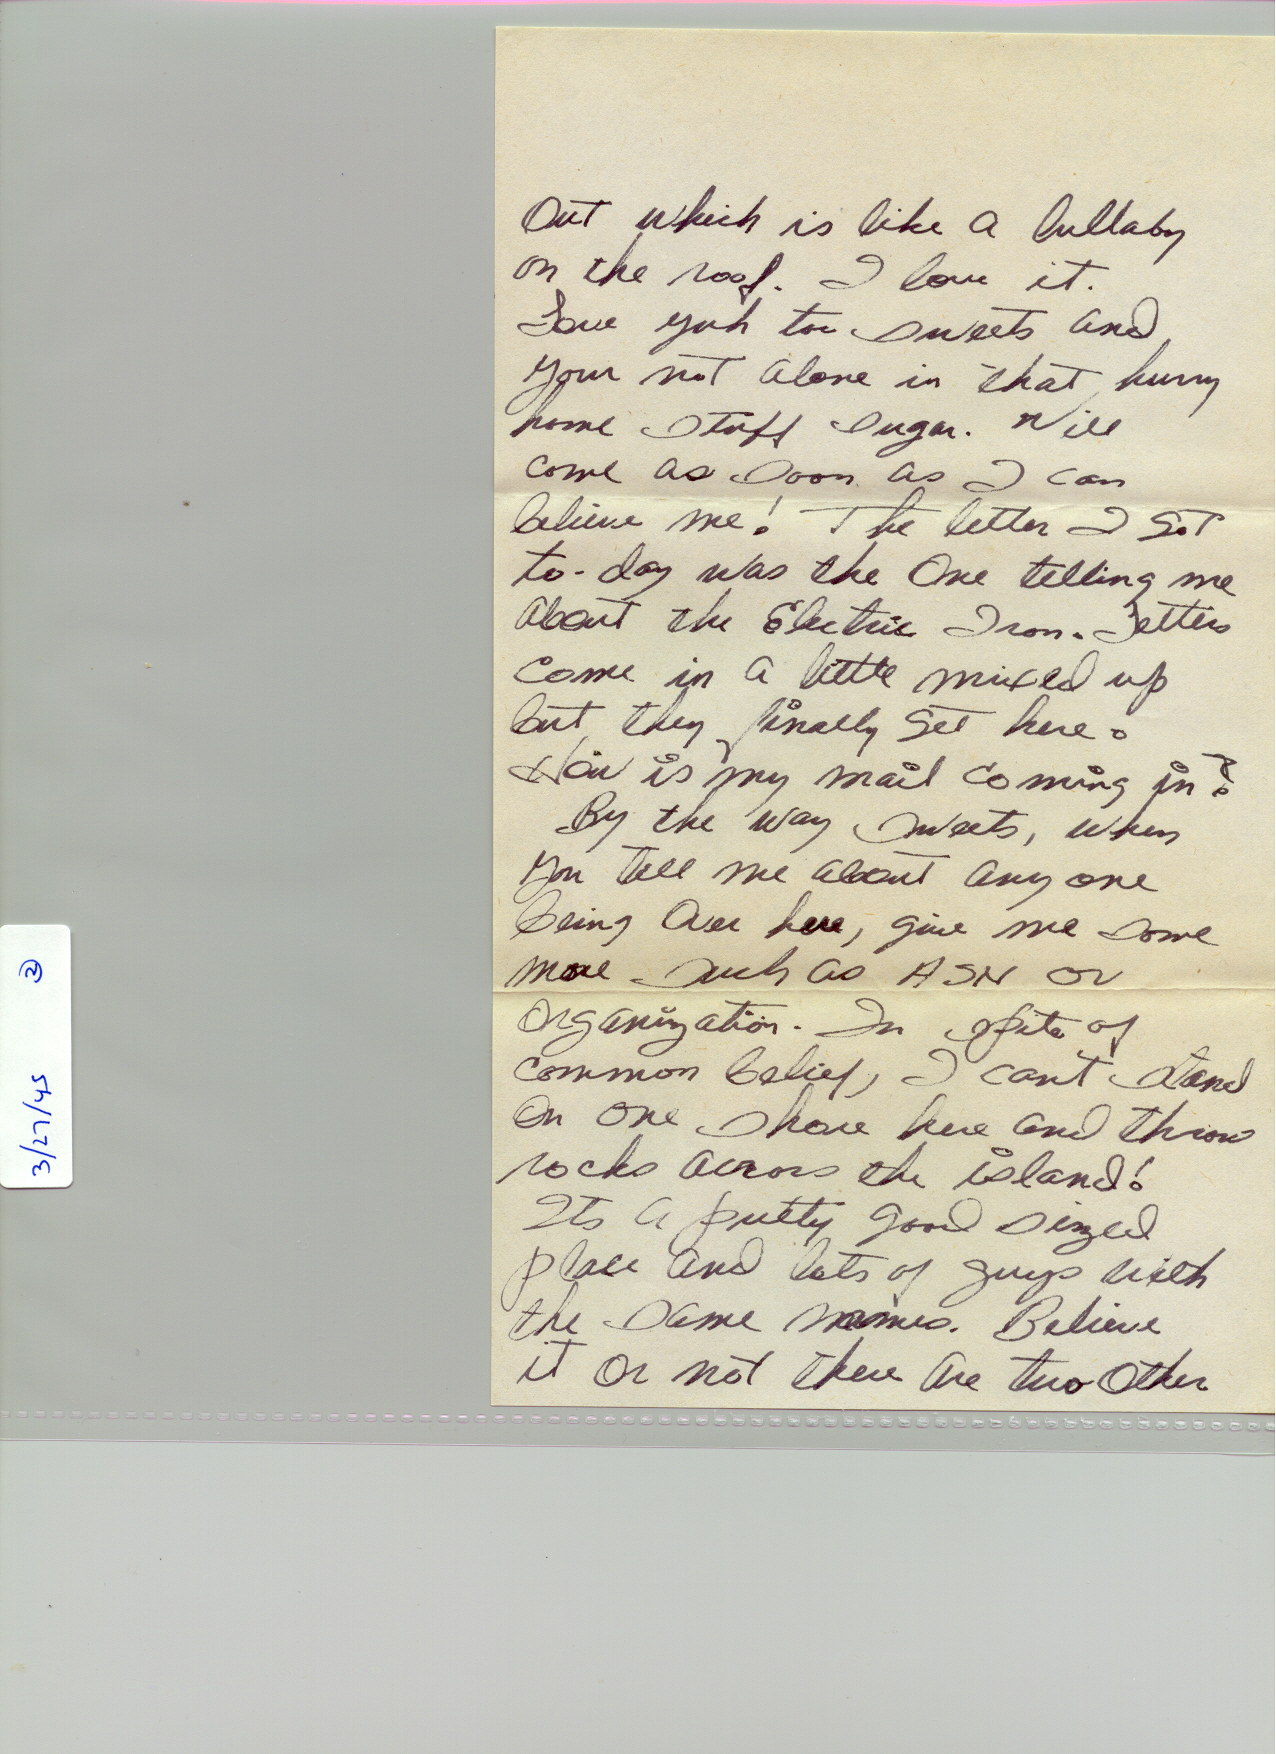 Out which is like a lullaby
on the roof. I love it.
Love yuh too sweets and
your not alone in that hurry
home stuff sugar. Will
come as soon as I can
believe me! The letter I got
to-day was the one telling me
about the Electric Iron. Letters
come in a little mixed up
but they finally get here.
How is my mail coming in?
By the way sweets, when
you tell me about any one
being over here, give me some
more such as ASN or
Organization. In spite of
common belief, I cant stand
on one shore here and throw
rocks across the island!
Its a pretty good sized
place and lots of guys with
the same names. Believe
it or not there are two other
3/27/45 ②